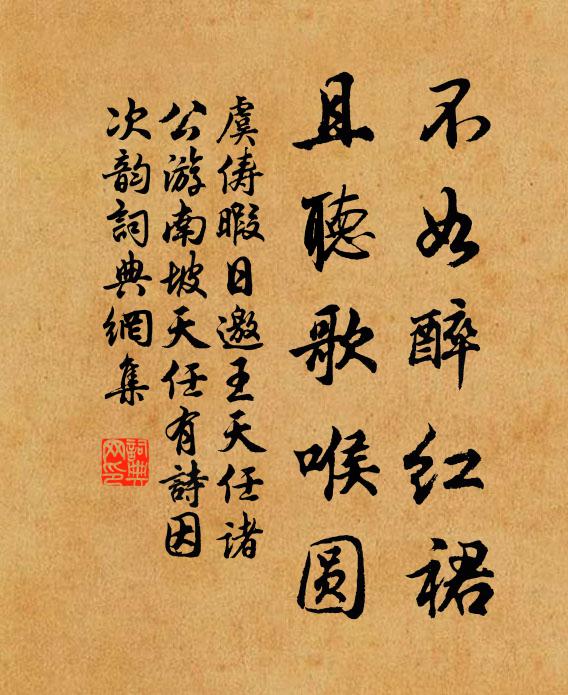 不如醉红裙
且聽歌喉圆
虞俦暇日邀王天任诸
公游南坡天任有詩因
次韵詞典網集
詞典
网印